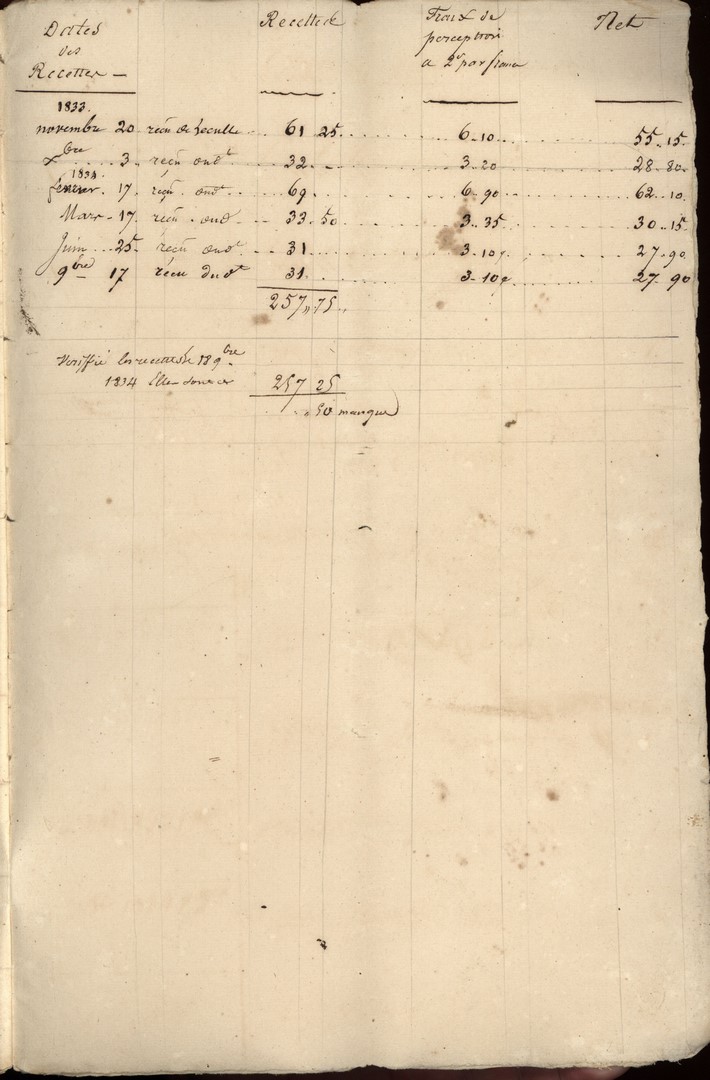 Dates Recettes Fraix de Net
des perception
Recettes — a 2s par franc
1833.
novembre 20 reçu de 61 25 6 - 10 55 - 15
Xbre 3 reçu dudt 32 3 - 20 28 - 80
1834
février 17 reçu dudt 69 6 - 90 62 - 10
Mars - 17 reçu dudt 33 - 50 3 - 35 30 - 15
Juin 25 reçu dudt 31 3 - 10 27 - 90
9bre 17 reçu dudt 31 3 - 10 27 - 90
257 " 75
Veriffié les recettes le 18 9bre
1834 Elles sont 257 25
" 50 manque